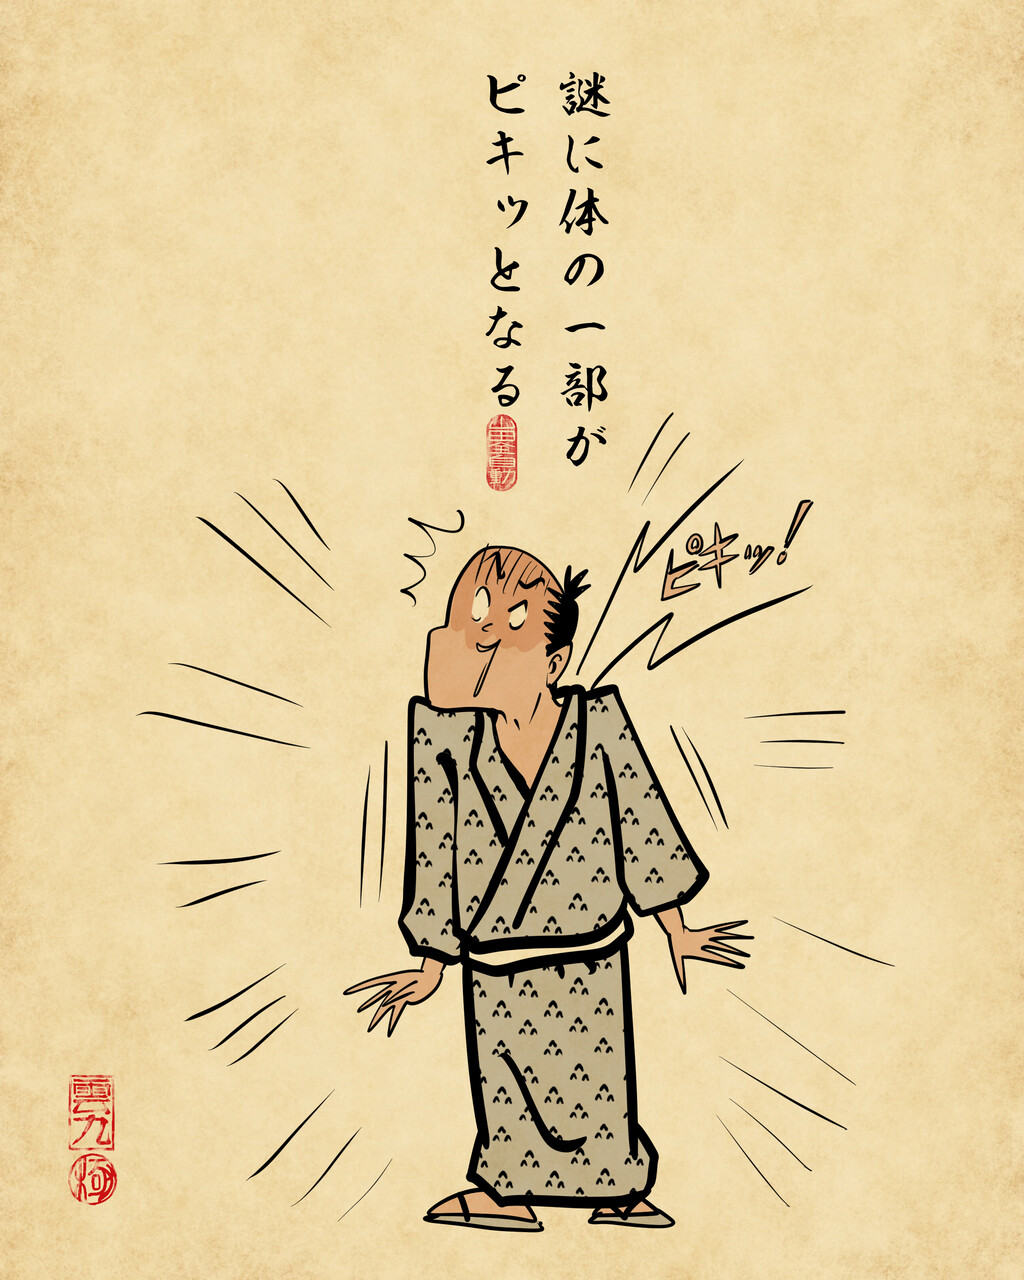 謎に体の一部が
ピキッとなる
ピキッ!
雲九
極